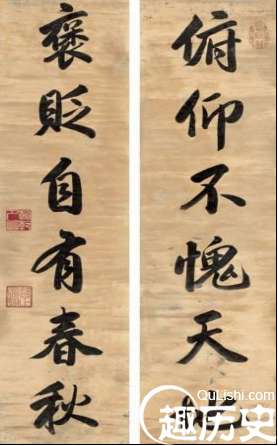 俯仰不愧天
褒貶自有春秋
QuLishi.com
趣历史